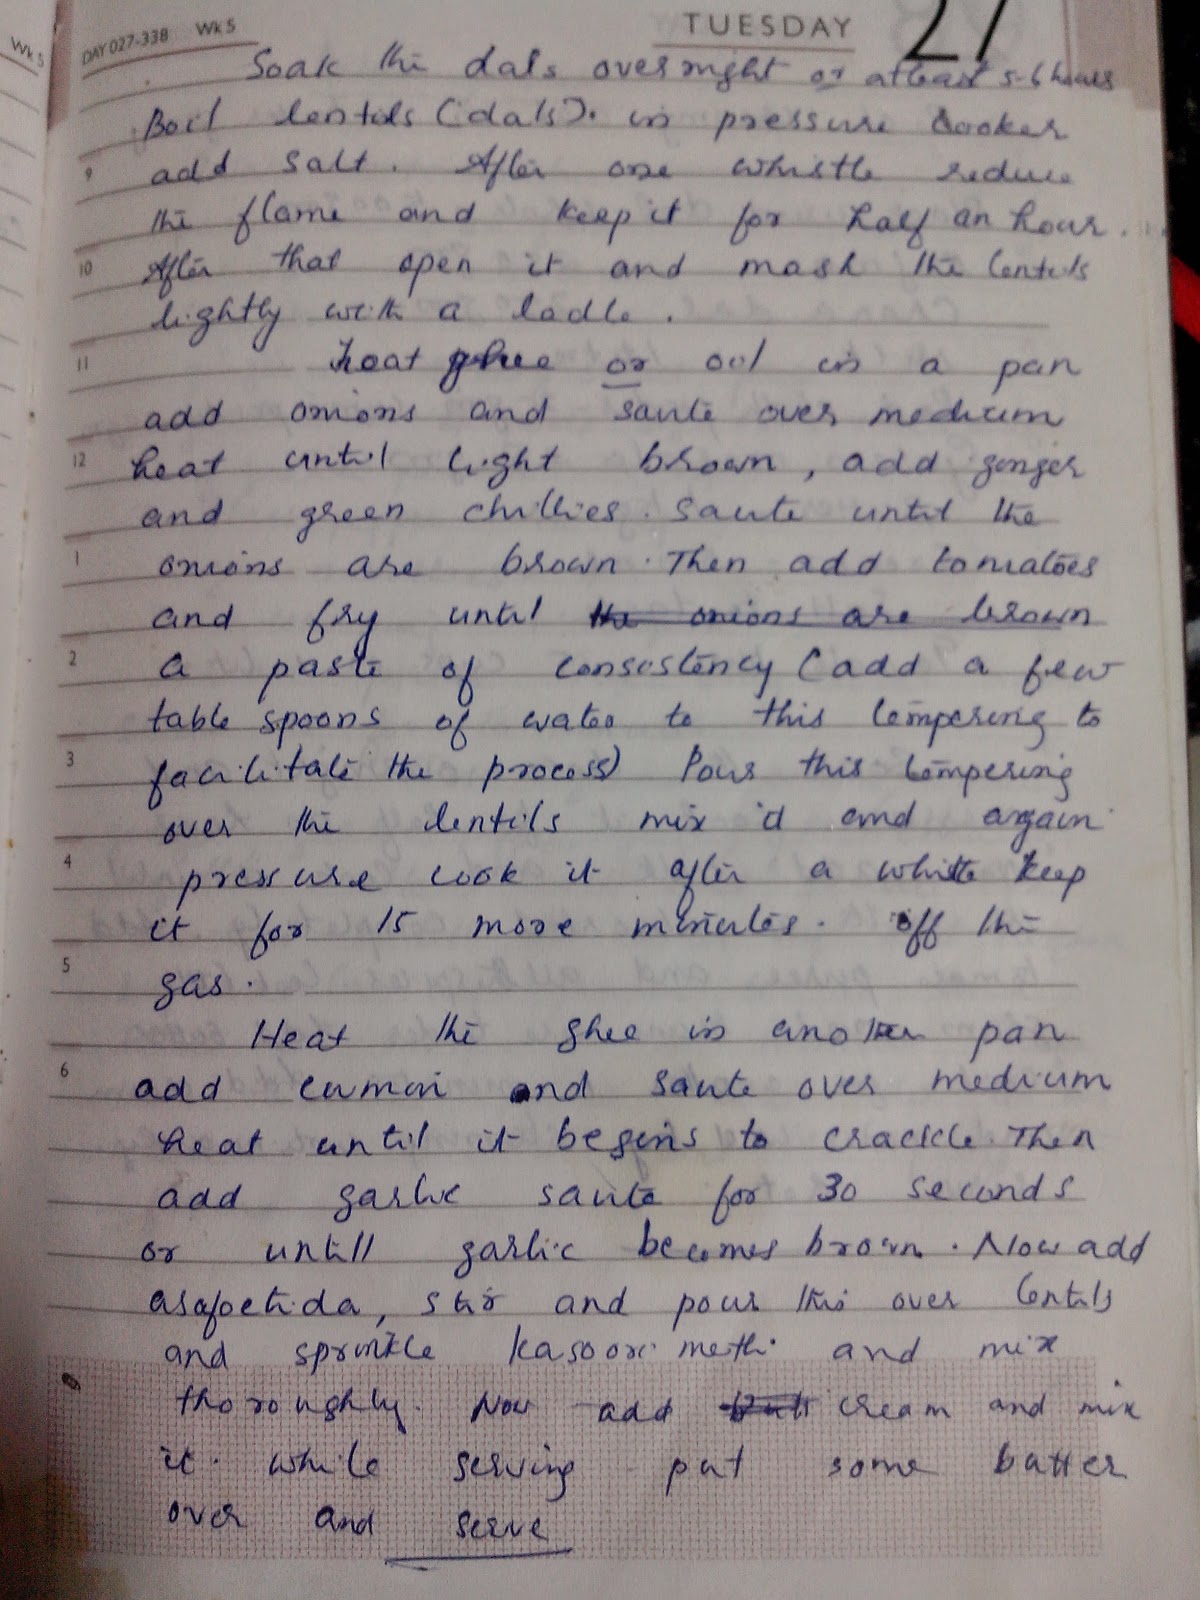 Wk 5
DAY 027-338 Wk 5
TUESDAY 27
Soak the dals overnight or atleast 5-6 hours
Boil lentils (dals). in pressure cooker
9 add salt. After one whistle reduce
the flame and keep it for half an hour.
10 After that open it and mash the lentils
lightly with a ladle.
11 heat ghee or oil in a pan
add onions and saute over medium
12 heat until light brown, add ginger
and green chillies. Saute until the
1 onions are brown. Then add tomatoes
and fry until the onions are brown
2 a paste of consistency (add a few
table spoons of water to this tempering to
3 facilitate the process) Pour this tempering
over the lentils mix it and again
4 pressure cook it after a whistle keep
it for 15 more minutes. off the
5 gas.
Heat the ghee in another pan
6 add cumin and saute over medium
heat until it begins to crackle. Then
add garlic saute for 30 seconds
or untill garlic becomes brown. Now add
asafoetida, stir and pour this over lentils
and sprinkle kasoori methi and mix
thoroughly. Now add cream and mix
it. while serving put some butter
over and serve